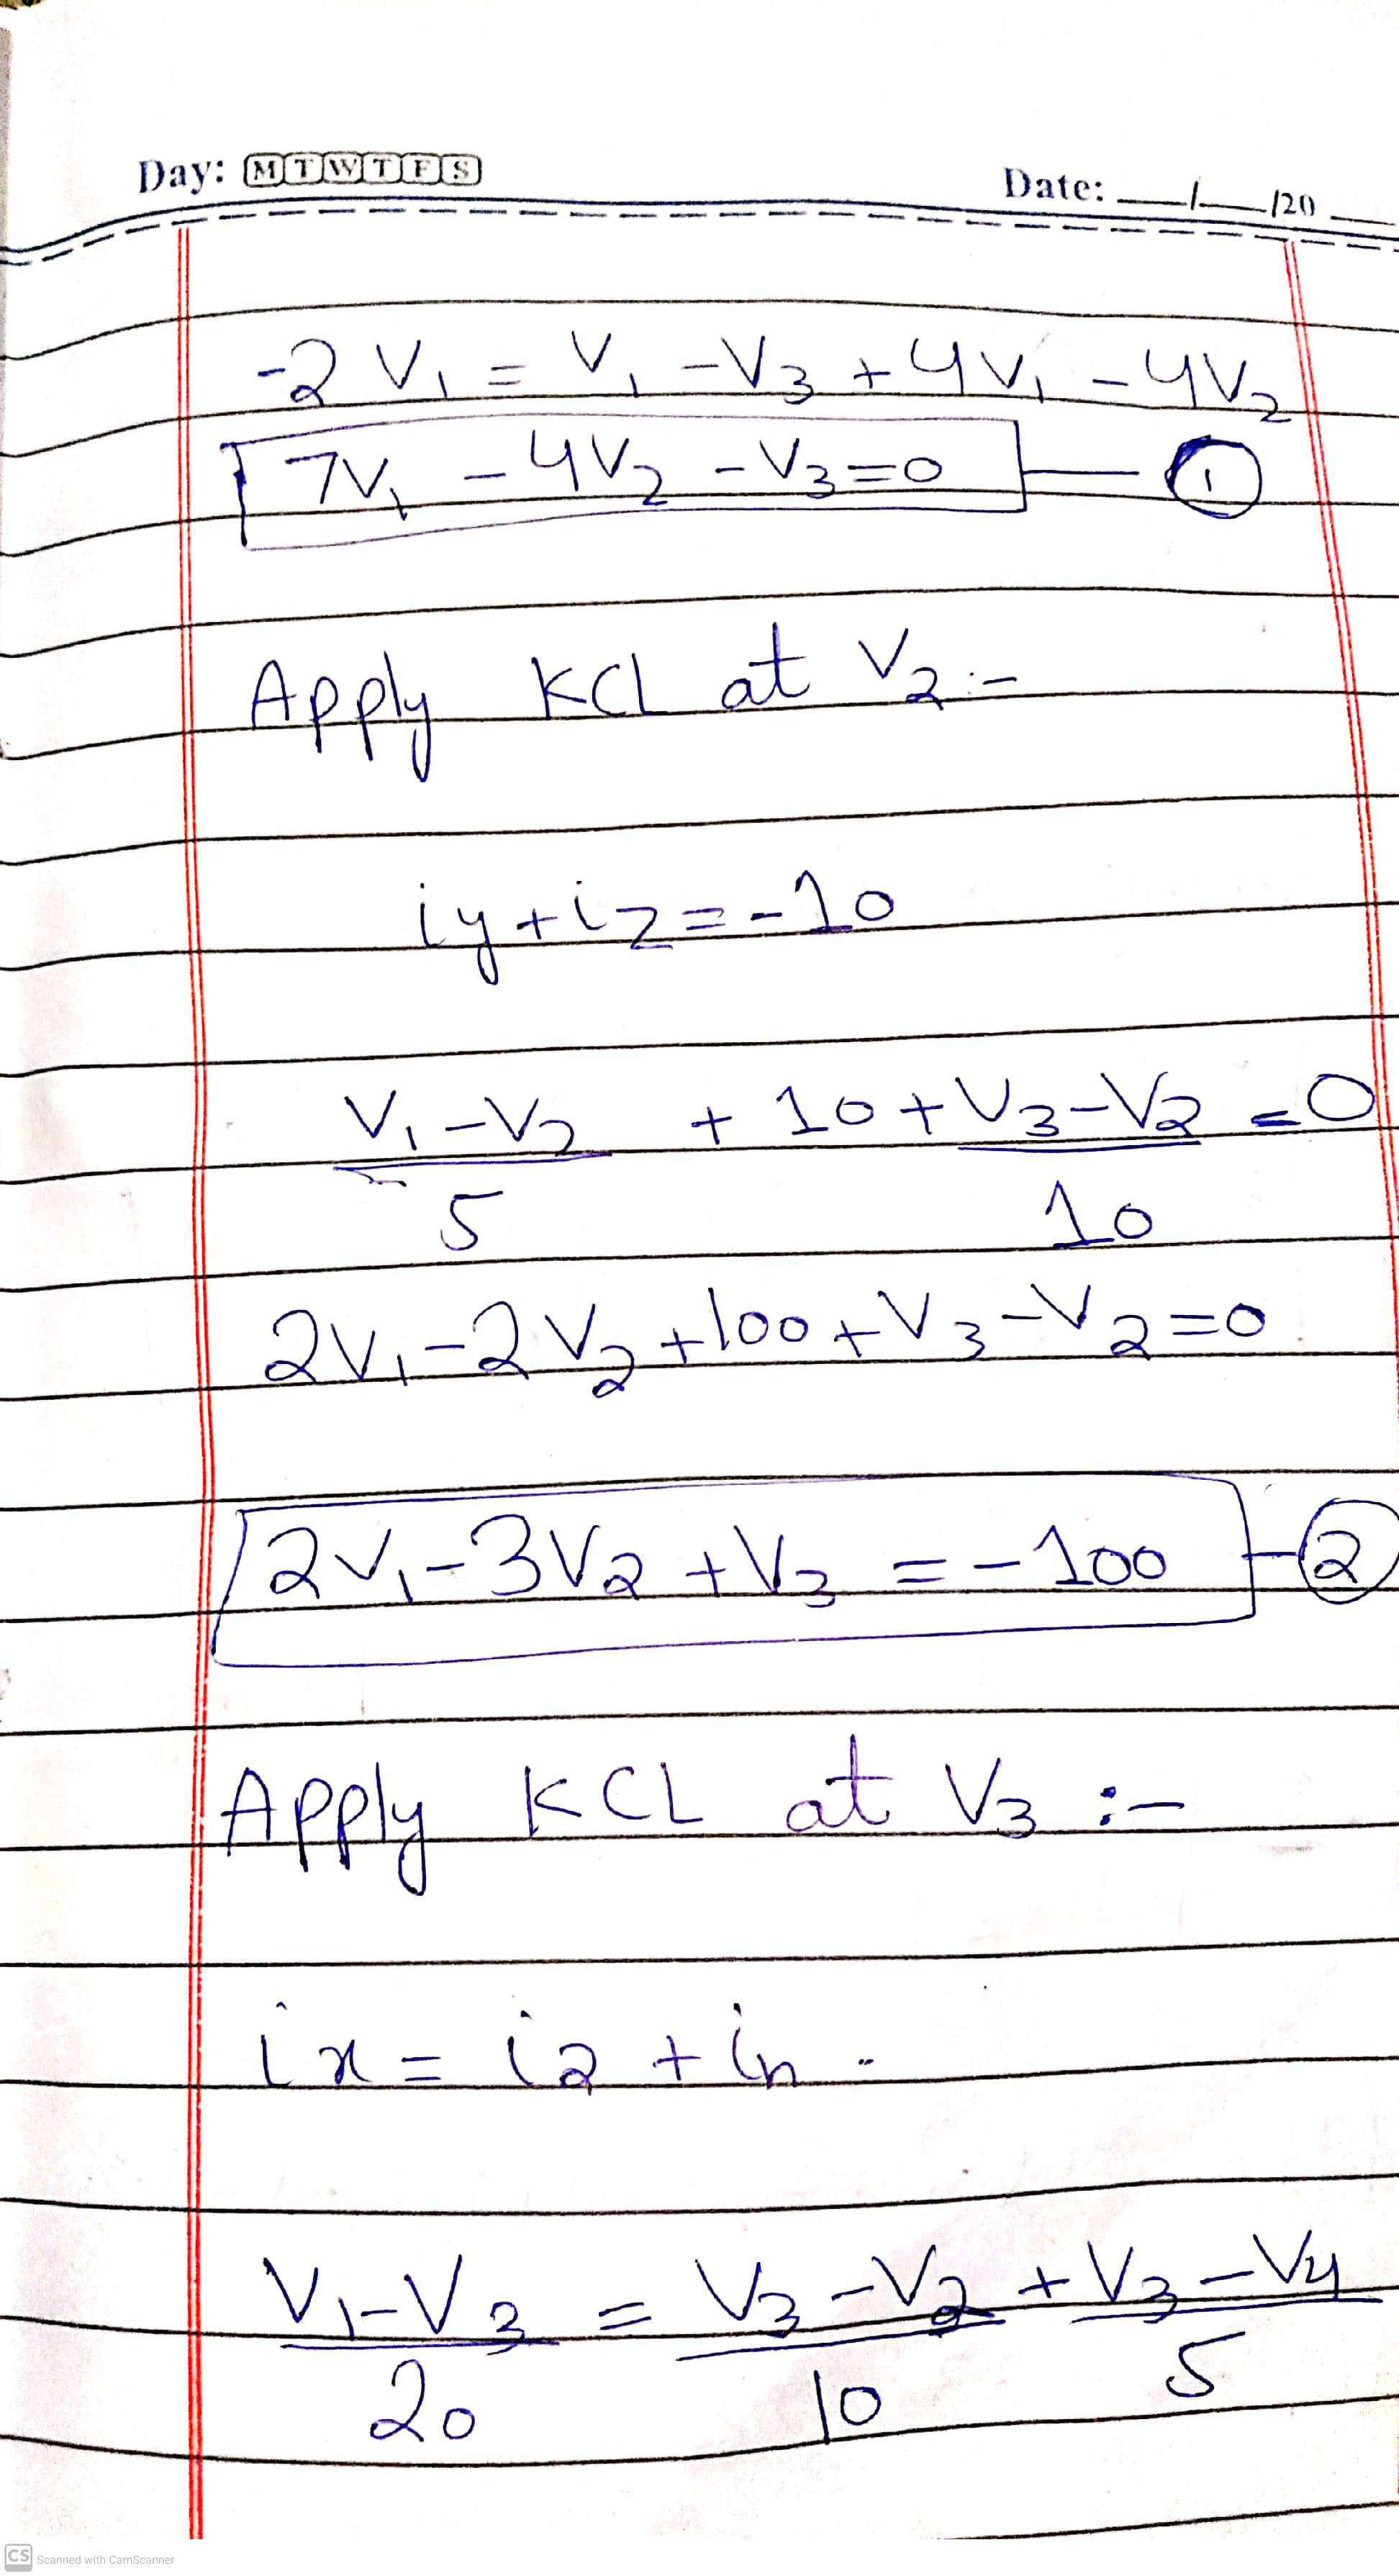 Day: M T W T F S
Date: __/__/20__
-2V₁ = V₁ - V₃ + 4V₁ - 4V₂
7V₁ - 4V₂ - V₃ = 0 — ①
Apply KCL at V₂:-
iy + iz = -10
(V₁ - V₂)/5 + 10 + (V₃ - V₂)/10 = 0
2V₁ - 2V₂ + 100 + V₃ - V₂ = 0
2V₁ - 3V₂ + V₃ = -100 — ②
Apply KCL at V₃ :-
ix = i2 + in
(V₁ - V₃)/20 = (V₃ - V₂)/10 + (V₃ - V₄)/5
CS Scanned with CamScanner